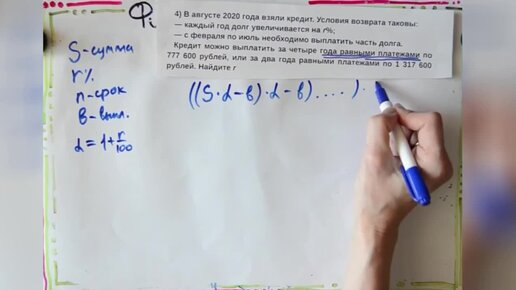 Фi
4) В августе 2020 года взяли кредит. Условия возврата таковы:
— каждый год долг увеличивается на r%;
— с февраля по июль необходимо выплатить часть долга.
Кредит можно выплатить за четыре года равными платежами по
777 600 рублей, или за два года равными платежами по 1 317 600
рублей. Найдите r
S-сумма
r%
n-срок
в-выпл.
α=1+r/100
((S·α-в)·α-в)....)·